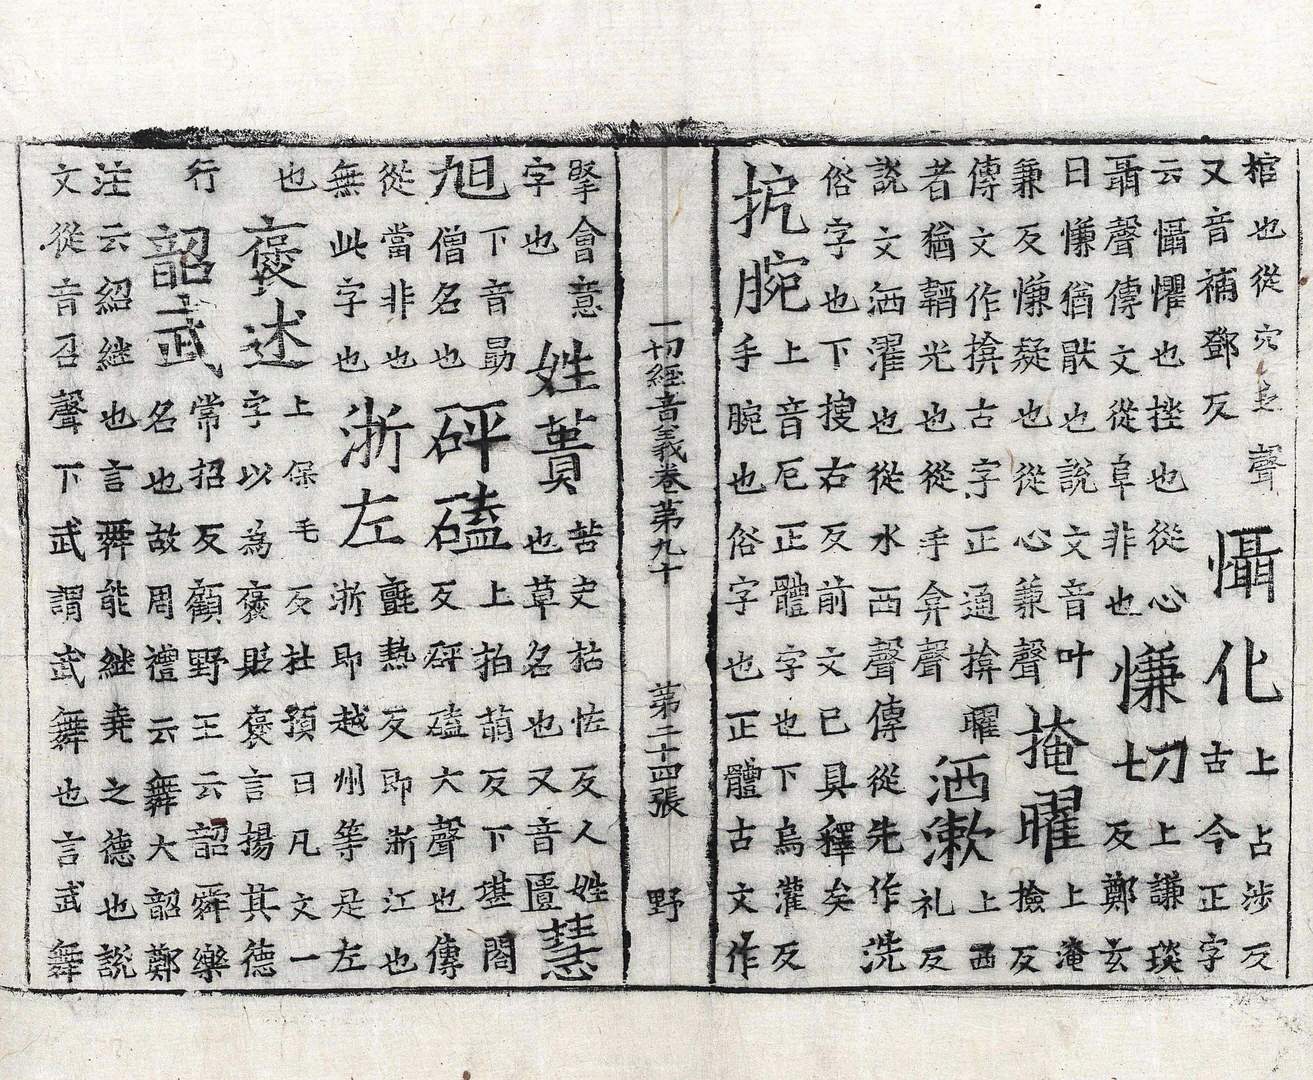 棺也從穴乏聲又音補鄧反懾化上占涉反古今正字
云懾懼也挫也從心聶聲傳文從阜非也慊切上謙琰反鄭玄
曰慊猶厭也說文音叶兼反慊凝也從心兼聲掩曜上淹撿反
傳文作揜古字正通揜曜者猶韜光也從手弇聲洒漱上西礼反
說文洒濯也從水西聲傳從先作洗俗字也下搜右反前文已具釋矣
抳腕上音厄正體字也下烏灌反手腕也俗字也正體古文作
一切經音義卷第九十 第二十四張 野
掔會意字也姓蕢苦史枯怪反人姓也草名也又音匱慧
旭下音勗僧名也砰磕上拍萌反下堪閤反砰磕大聲也傳
從當非也無此字也浙左氈熱反即浙江也浙即越州等是左
也褒述上保毛反杜預曰凡文一字以為褒貶褒言揚其德
行韶武常招反顧野王云韶舜樂名也故周禮云舞大韶鄭
注云紹継也言舜能継堯之德也說文從音召聲下武謂武舞也言武舞